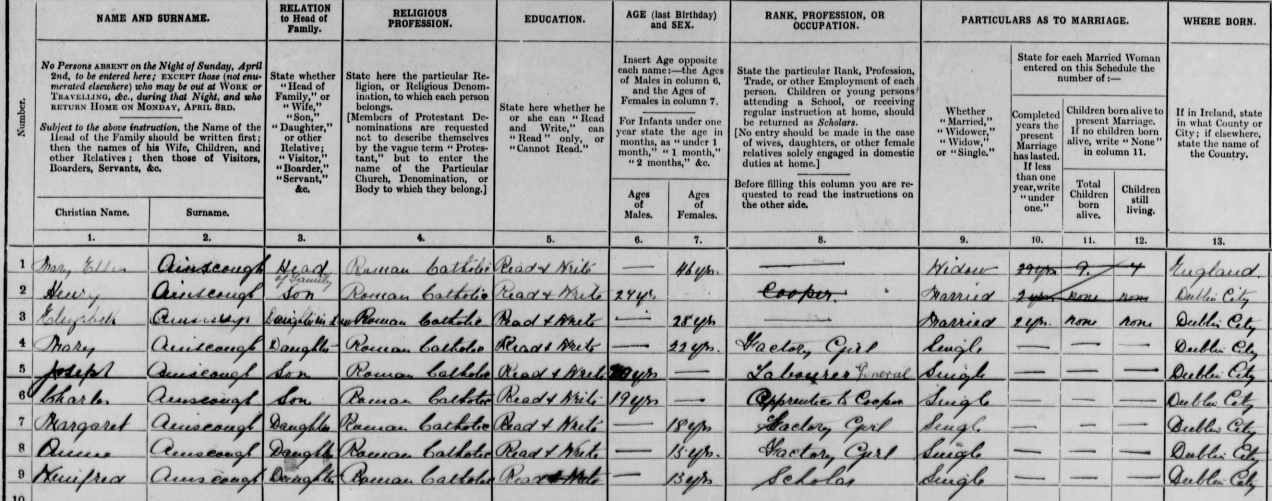 NAME AND SURNAME.
RELATION to Head of Family.
RELIGIOUS PROFESSION.
EDUCATION.
AGE (last Birthday) and SEX.
RANK, PROFESSION, OR OCCUPATION.
PARTICULARS AS TO MARRIAGE.
WHERE BORN.
Number.
No Persons ABSENT on the Night of Sunday, April
2nd, to be entered here; EXCEPT those (not enu-
merated elsewhere) who may be out at WORK or
TRAVELLING, &c., during that Night, and who
RETURN HOME ON MONDAY, APRIL 3RD.
Subject to the above instruction, the Name of the
Head of the Family should be written first;
then the names of his Wife, Children, and
other Relatives; then those of Visitors,
Boarders, Servants, &c.
Christian Name.
Surname.
State whether
"Head of
Family," or
"Wife,"
"Son,"
"Daughter,"
or other
Relative;
"Visitor,"
"Boarder,"
"Servant,"
&c.
State here the particular Re-
ligion, or Religious Denom-
ination, to which each person
belongs.
[Members of Protestant De-
nominations are requested
not to describe themselves
by the vague term "Protes-
tant," but to enter the
name of the Particular
Church, Denomination, or
Body to which they belong.]
State here whether he
or she can "Read
and Write," can
"Read" only, or
"Cannot Read."
Insert Age opposite
each name:—the Ages
of Males in column 6,
and the Ages of
Females in column 7.
For Infants under one
year state the age in
months, as "under 1
month," "1 month,"
"2 months," &c.
Ages of Males.
Ages of Females.
State the particular Rank, Profession,
Trade, or other Employment of each
person. Children or young persons
attending a School, or receiving
regular instruction at home, should
be returned as Scholars.
[No entry should be made in the case
of wives, daughters, or other female
relatives solely engaged in domestic
duties at home.]
Before filling this column you are re-
quested to read the instructions on
the other side.
Whether
"Married,"
"Widower,"
"Widow,"
or "Single."
State for each Married Woman
entered on this Schedule the
number of:—
Completed
years the
present
Marriage
has lasted.
If less
than one
year, write
"under
one."
Children born alive to
present Marriage.
If no children born
alive, write "None"
in column 11.
Total
Children
born
alive.
Children
still
living.
If in Ireland, state
in what County or
City; if elsewhere,
state the name of
the Country.
1. 2. 3. 4. 5. 6. 7. 8. 9. 10. 11. 12. 13.
1 Mary Ellen Ainscough Head of Family Roman Catholic Read & Write — 46 yrs. — Widow 9 England.
2 Henry Ainscough Son Roman Catholic Read & Write 24 yrs Cooper. Married 2 yrs none none Dublin City
3 Elizabeth Ainscough Daughter in Law Roman Catholic Read & Write — 28 yrs — Married 2 yrs. none none Dublin City
4 Mary Ainscough Daughter Roman Catholic Read & Write — 22 yrs. Factory Girl Single — — — Dublin City
5 Joseph Ainscough Son Roman Catholic Read & Write yrs — Labourer General Single — — — Dublin City
6 Charles Ainscough Son Roman Catholic Read & Write 19 yrs — Apprentice to Cooper Single — — — Dublin City
7 Margaret Ainscough Daughter Roman Catholic Read & Write — 18 yrs Factory Girl Single — — — Dublin City
8 Annie Ainscough Daughter Roman Catholic Read & Write — 15 yrs. Factory Girl Single — — — Dublin City
9 Winifred Ainscough Daughter Roman Catholic Read & Write — 13 yrs Scholar Single — — — Dublin City
10